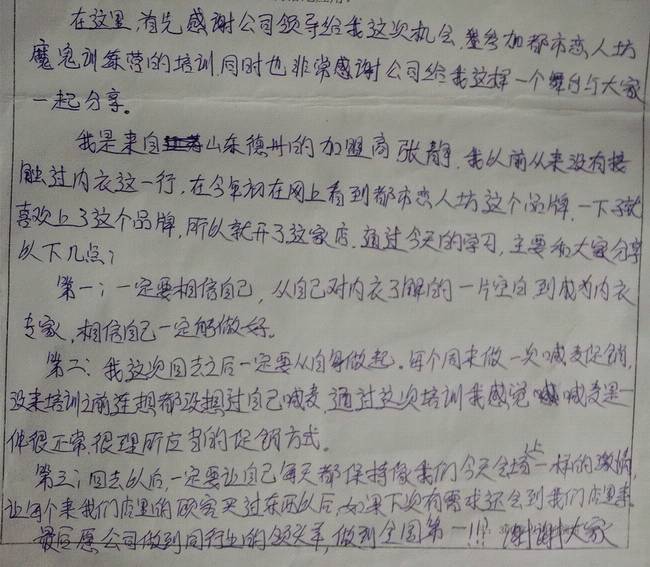 在这里,首先感谢公司领导给我这次机会,参加都市恋人坊
魔鬼训练营的培训,同时也非常感谢公司给我这样一个舞台与大家
一起分享。
我是来自山东德州的加盟商张静,我以前从来没有接
触过内衣这一行,在今年初在网上看到都市恋人坊这个品牌,一下子就
喜欢上了这个品牌,所以就开了这家店,通过今天的学习,主要和大家分享
以下几点;
第一;一定要相信自己,从自己对内衣了解的一片空白,到成为内衣
专家,相信自己一定能做好。
第二:我这次回去之后一定要从自身做起,每个周末做一次喊麦促销,
没来培训之前连想都没想过自己喊麦,通过这次培训我感觉喊麦是一
件很正常,很理所应当的促销方式。
第三;回去以后,一定要让自己每天都保持像我们今天会场上一样的激情,
让每个来我们店里的顾客买过东西以后,如果下次有需求还会到我们店里来。
最后愿公司做到同行业的领头羊,做到全国第一!!!谢谢大家